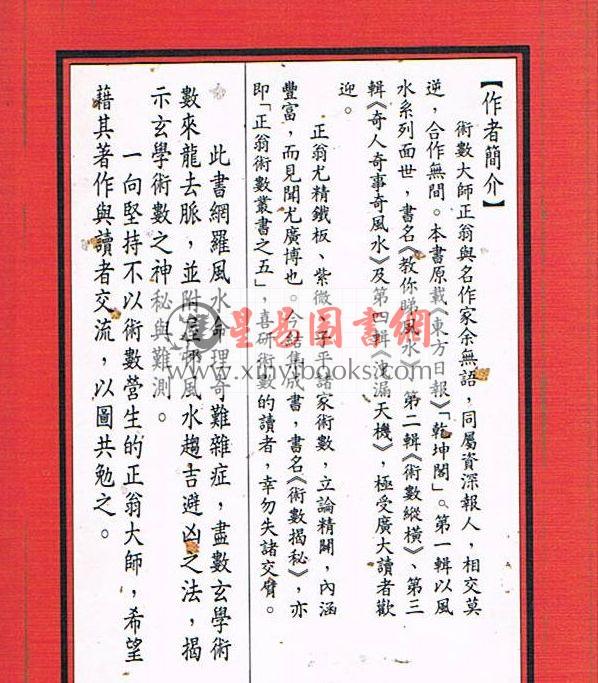 【作者簡介】
術數大師正翁與名作家余無語，同屬資深報人，相交莫
逆，合作無間。本書原載《東方日報》「乾坤閣」。第一輯以風
水系列面世，書名《教你睇風水》，第二輯《術數縱橫》、第三
輯《奇人奇事奇風水》及第四輯《洩漏天機》，極受廣大讀者歡
迎。
正翁尤精鐵板、紫微、子平諸家術數，立論精闢，內涵
豐富，而見聞尤廣博也。今結集成書，書名《術數揭秘》，亦
即「正翁術數叢書之五」，喜研術數的讀者，幸勿失諸交臂。
此書網羅風水命理奇難雜症，盡數玄學術
數來龍去脈，並附
風水趨吉避凶之法，揭
示玄學術數之神秘與難測。
一向堅持不以術數營生的正翁大師，希望
藉其著作與讀者交流，以圖共勉之。
星易圖書網
www.xinyibooks.com